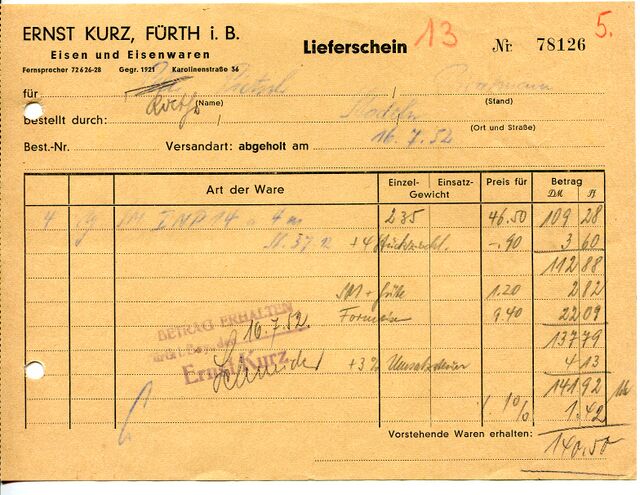 ERNST KURZ, FÜRTH i. B.
Eisen und Eisenwaren
Fernsprecher 72626-28 Gegr. 1921 Karolinenstraße 36
Lieferschein 13 Nr. 78126 5.
für
(Name) (Stand)
bestellt durch:
16. 7. 52 (Ort und Straße)
Best.-Nr. Versandart: abgeholt am
Art der Ware Einzel- Einsatz- Gewicht Preis für Betrag
DM Pf
4 INP 14 a 4 m 235 46.50 109 28
St. 37.12 +4 -.90 3 60
112 88
SM + 1.20 2 82
9.40 22 09
137 79
BETRAG ERHALTEN
16.7.52
Ernst Kurz
+3% Umsatzsteuer 4 13
141 92
1% 1.42
Vorstehende Waren erhalten: 140.50